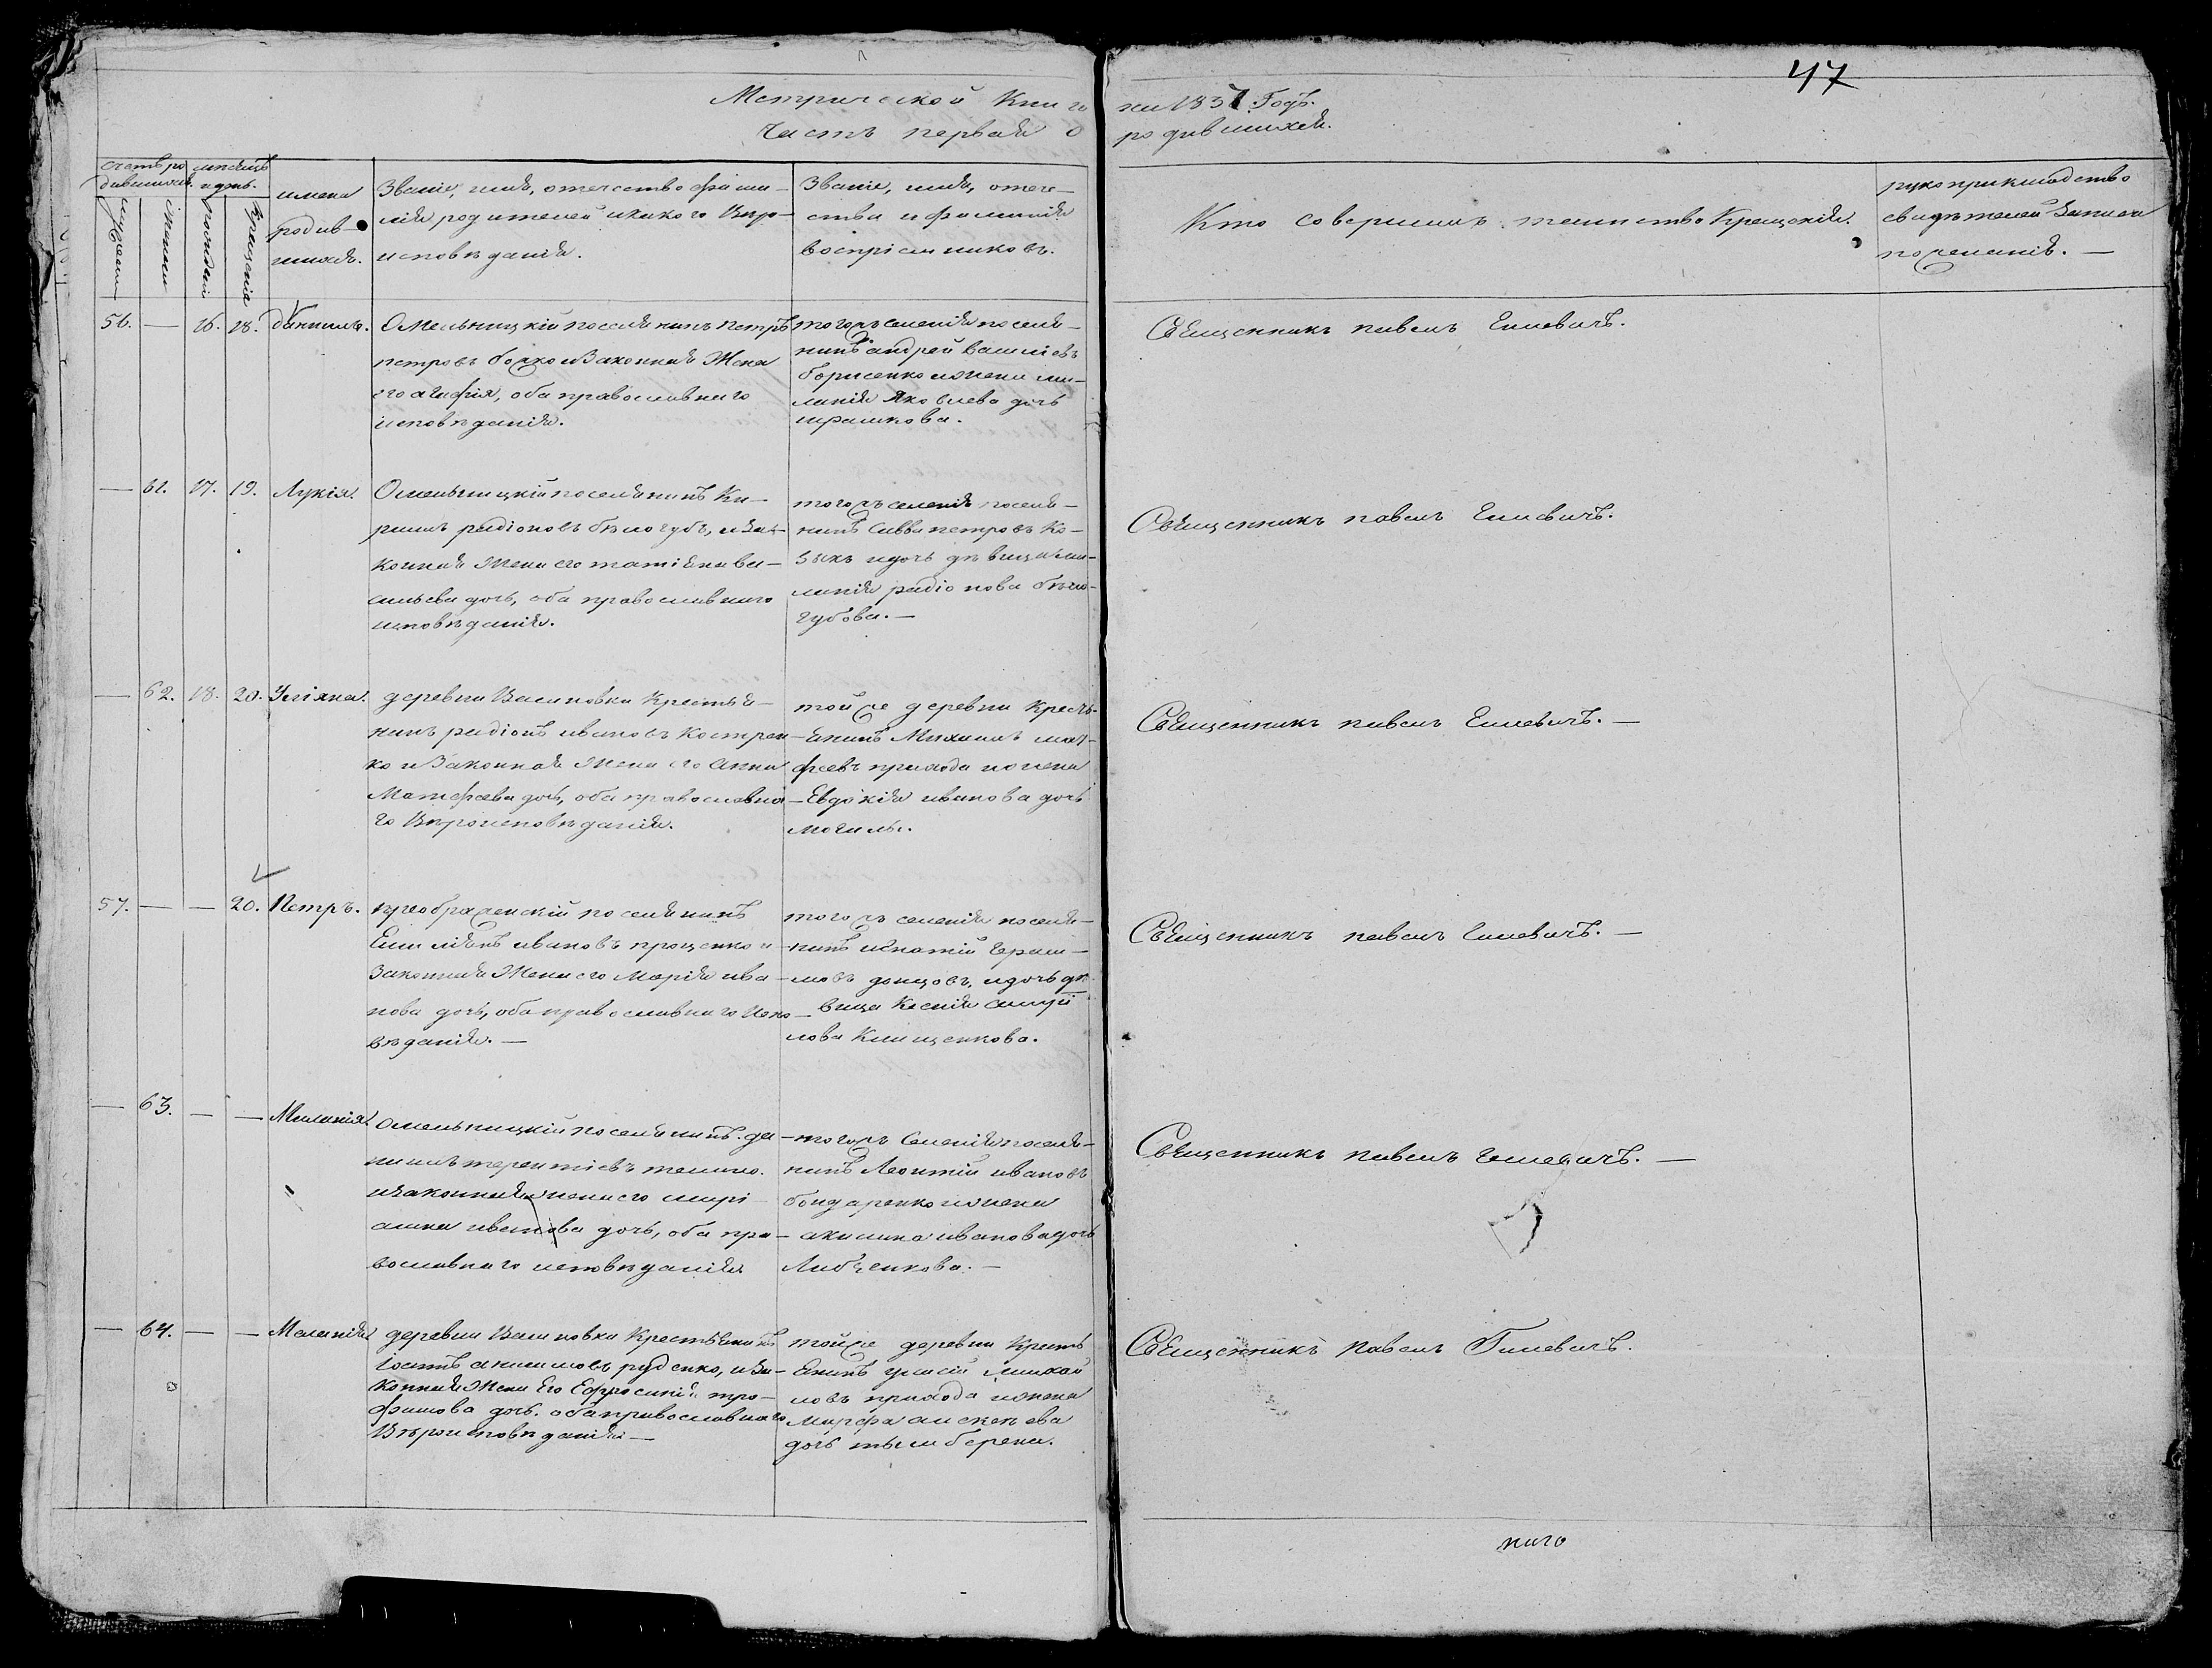 47
Метрической Книги на 1837 Годъ.
Часть первая о родившихся.
счетъ ро
дившихся.
мѣсяцъ
и день.
мужеска
женска
рожденія
крещенія
имена
родив
шихся.
Званіе, имя, отечество фами
лія родителей икакого Вѣро
исповѣданія.
Званіе, имя, отече
ство и фамилія
воспріемниковъ.
Кто совершалъ таинство Крещенія.
рукоприкладство
свидѣтелей записи
пожеланію. —
56. — 16. 18. даніилъ.
Омельницкій поселянинъ петръ
петровъ бойко изаконная Жена
его агафія, оба православнаго
исповѣданія.
тогожъ селенія поселя
нинъ андрей василіевъ
борисенко ижена ме
ланія Яковлева дочь
Священникъ павелъ Гилевичъ.
— 61. 17. 19. Лукія.
Омельницкій поселянинъ Ки
рилъ радіоновъ бѣлогубъ, иза
конная Жена его татіяна ва
сильева дочь, оба православнаго
исповѣданія.
тогожъ селенія поселя
нинъ Савва петровъ Ко
зыкъ идочь дѣвица ме
ланія радіонова бѣло
губова. —
Священникъ павелъ Гилевичъ.
— 62. 18. 20. Уліяна.
деревни Васиновки Крестья
нинъ радіонъ ивановъ Костре
ко и Законная Жена его Анна
Матфеева дочь, оба православна
го Вѣроисповѣданія.
тойже деревни Кресть
янинъ Михаилъ мат
феевъ прихода ижена
Евдокія иванова дочь
могилы.
Священникъ павелъ Гилевичъ. —
57. — — 20. Петръ.
преображенскій поселянинъ
Емиліянъ ивановъ проценко и
Законная Жена его Марія ива
нова дочь, оба православнаго испо
вѣданія. —
тогожъ селенія поселя
нинъ игнатій гераси
мовъ донцовъ, идочь дѣ
вица Ксенія самуй
лова Клищенкова.
Священникъ павелъ Гилевичъ. —
— 63. — — Меланія.
Омельницкій поселянинъ да
ніилъ терентіевъ
изаконная жена его марі
амна иванова дочь, оба пра
вославнаго исповѣданія
тогожъ Селенія поселя
нинъ Леонтій ивановъ
бондаренко ижена
акилина иванова дочь
Либценкова. —
Священникъ павелъ Гилевичъ. —
— 64. — — Меланія
деревни Васиновки Крестьянинъ
акимовъ руденко, иза
конная Жена Его Ефросинія тро
фимова дочь. оба православнаго
Вѣроисповѣданія —
тойже деревни Кресть
янинъ михай
ловъ прихода ижена
Марфа алексѣева
дочь
Священникъ Павелъ Гилевичъ.